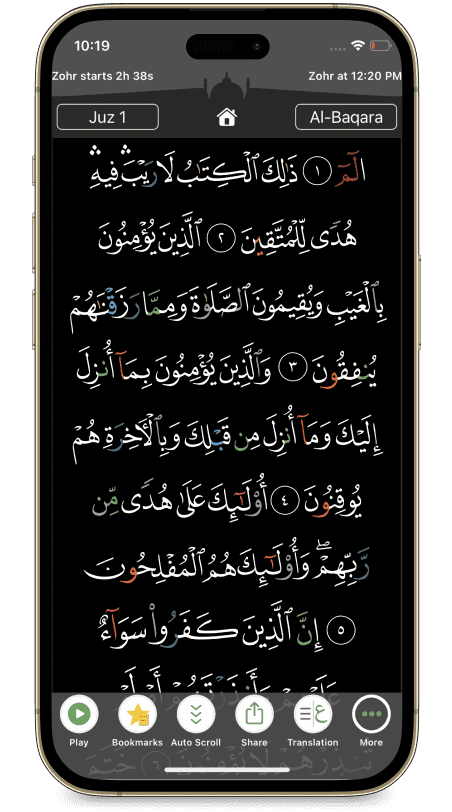 10:19
Zohr starts 2h 38s
Zohr at 12:20 PM
Juz 1
Al-Baqara
الٓمٓ ۝١ ذَٰلِكَ ٱلْكِتَٰبُ لَا رَيْبَۛ فِيهِۛ
هُدًى لِّلْمُتَّقِينَ ۝٢ ٱلَّذِينَ يُؤْمِنُونَ
بِٱلْغَيْبِ وَيُقِيمُونَ ٱلصَّلَوٰةَ وَمِمَّا رَزَقْنَٰهُمْ
يُنفِقُونَ ۝٣ وَٱلَّذِينَ يُؤْمِنُونَ بِمَآ أُنزِلَ
إِلَيْكَ وَمَآ أُنزِلَ مِن قَبْلِكَ وَبِٱلْءَاخِرَةِ هُمْ
يُوقِنُونَ ۝٤ أُو۟لَٰٓئِكَ عَلَىٰ هُدًى مِّن
رَّبِّهِمْ ۖ وَأُو۟لَٰٓئِكَ هُمُ ٱلْمُفْلِحُونَ
۝٥ إِنَّ ٱلَّذِينَ كَفَرُوا۟ سَوَآءٌ
Play
Bookmarks
Auto Scroll
Share
Translation
More